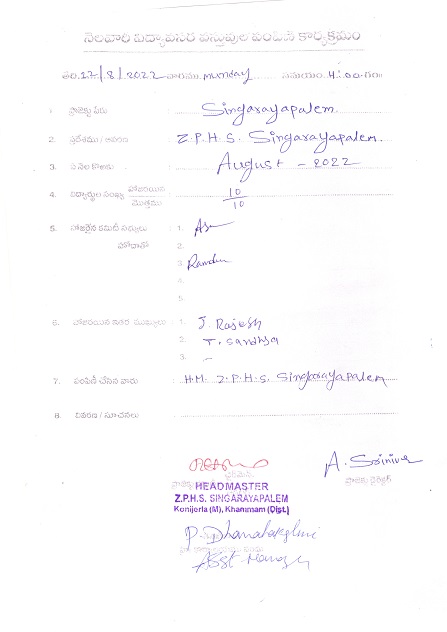 నెలవారి విద్యావసర వస్తువుల పంపిణి కార్యక్రమం
తేది. 17/8/2022 వారము munday సమయం 4:00 గం
1. ప్రాజెక్టు పేరు : Singarayapalem.
2. ప్రదేశము / ఆవరణ : Z.P.H.S. Singarayapalem.
3. ఏ నెల కొఱకు : August - 2022
4. విద్యార్థుల సంఖ్య హాజరయిన మొత్తము : 10/10
5. హాజరైన కమిటీ సభ్యులు హోదాతో : 1.
2.
3.
4.
5.
6. హాజరయిన ఇతర ముఖ్యులు : 1. J. Rajesh
2. T. Sandhya
3. -
7. పంపిణి చేసిన వారు : H.M. Z.P.H.S. Singarayapalem
8. వివరణ / సూచనలు :
A. Srinivas
ప్రాజెక్టు డైరెక్టర్
HEADMASTER
Z.P.H.S. SINGARAYAPALEM
Konijerla (M), Khammam (Dist.)
P. Dhanalakshmi
Asst Manager